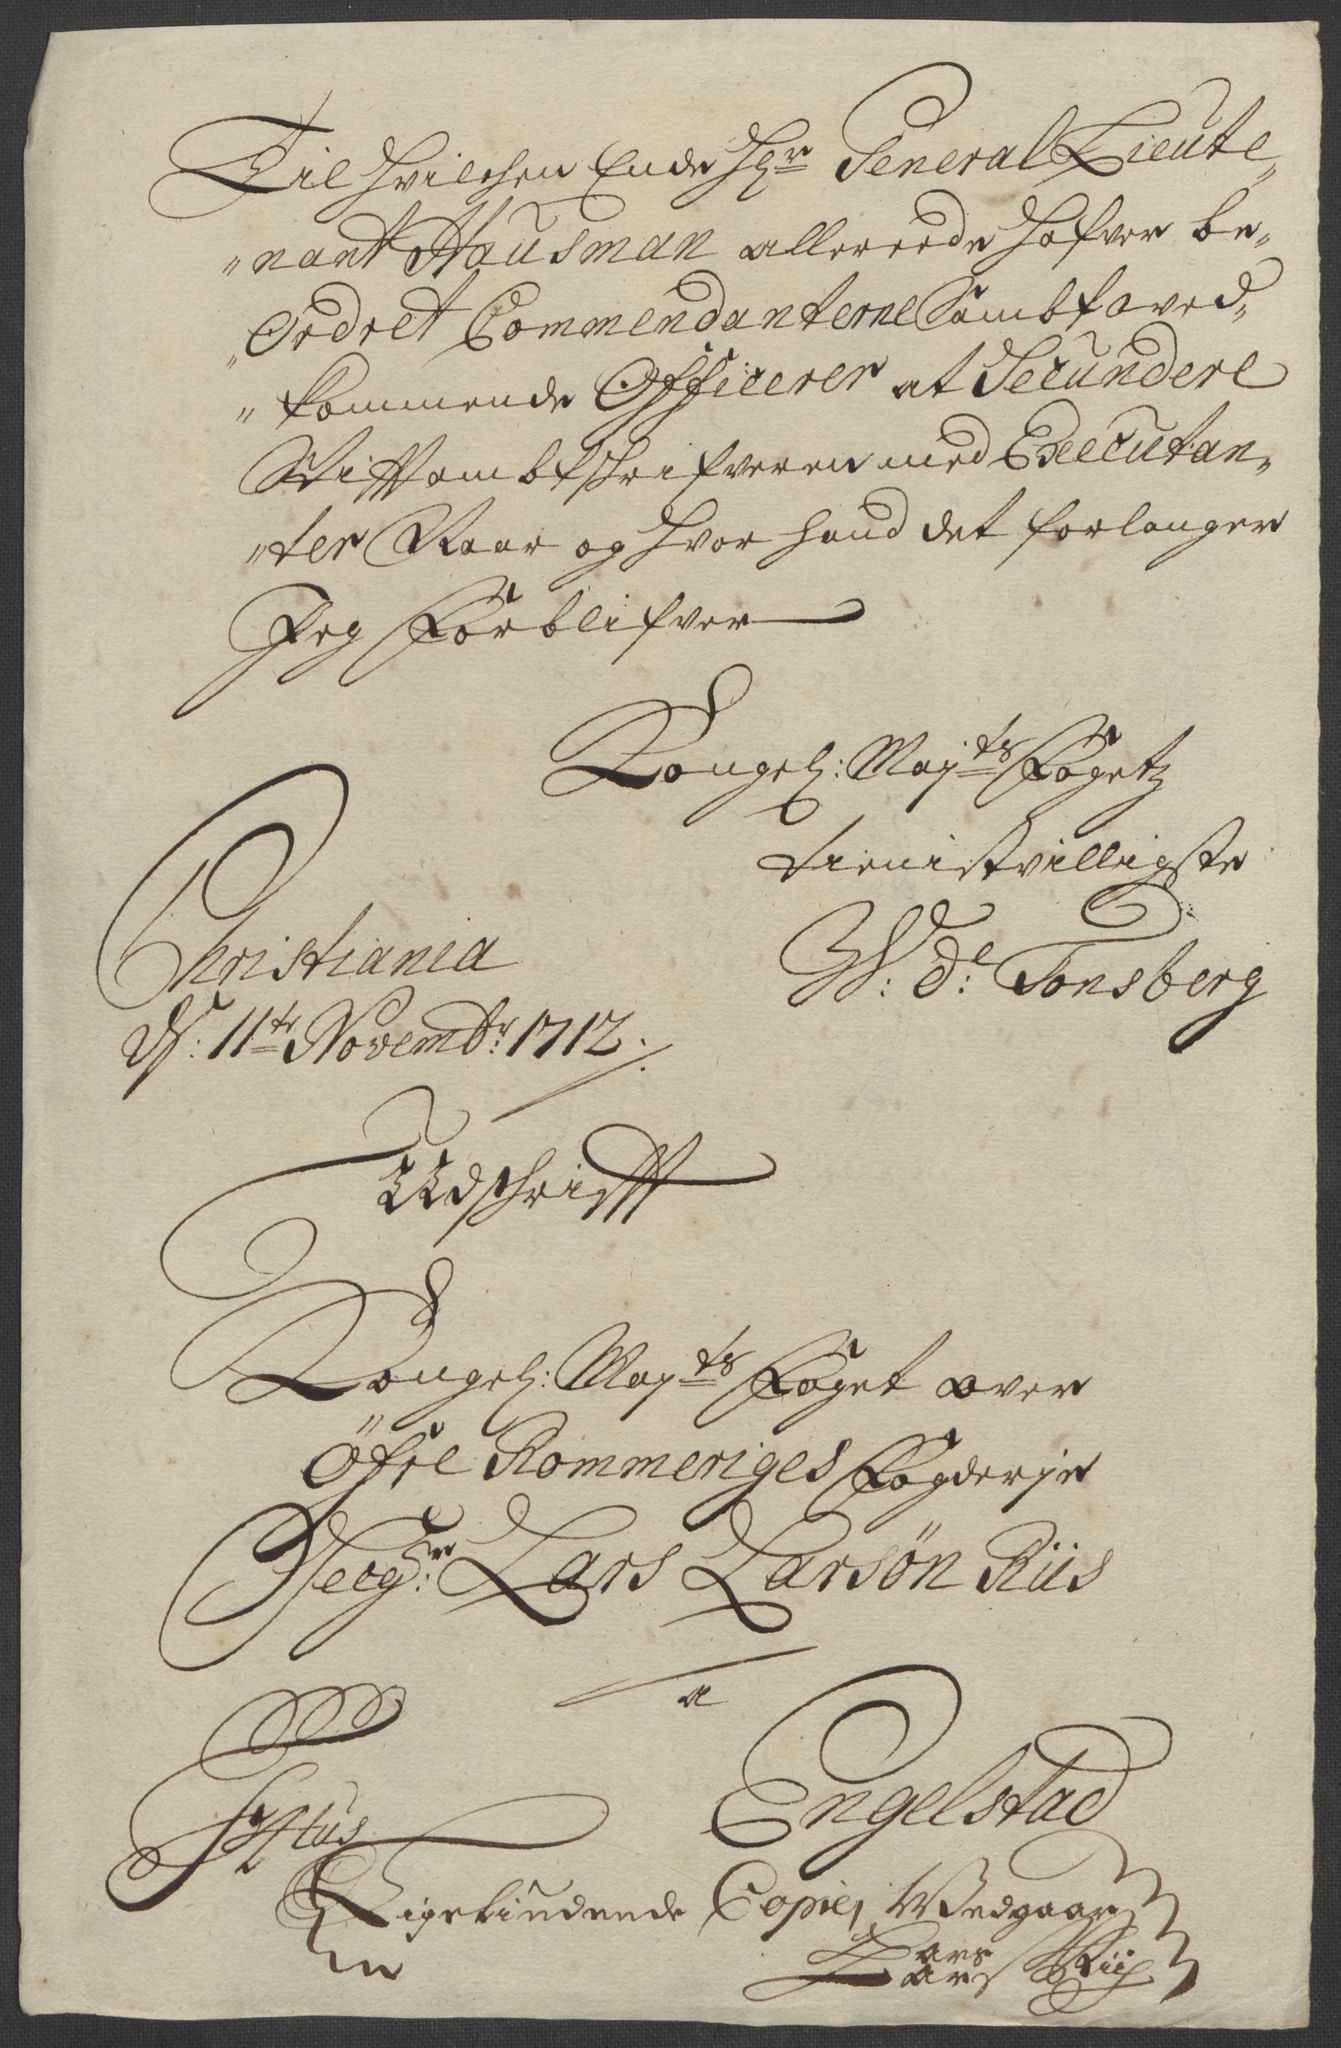 Til hvilchen Ende Hr General Lieute-
"nant Hausman allereede hafver be-
"Ordret Commendanterne Sambt aved-
"kommende Officerer at Secundere
Vittambtschrifveren med Executan-
"ter Naar og hvor hand det forlanger
Jeg Forblifver
Kongel: Majts Fogetz
tienistvilligste
W: de: Tonsberg
Christiania
d: 11te Novembr: 1712.
Udschrifft
Kongel: Majts Foget over
Öfre Rommeriges Fogderje
Seigr: Lars Larsøn Riis
a
Engelstad
Ligeliudende Copie, Vedgaar
Lars Riis